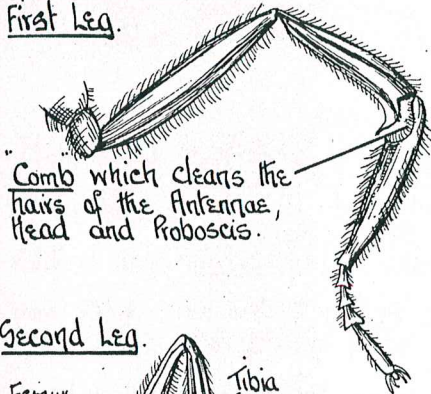 First Leg.
"Comb" which cleans the
hairs of the Antennae,
Head and Proboscis.
Second Leg.
Femur
Tibia